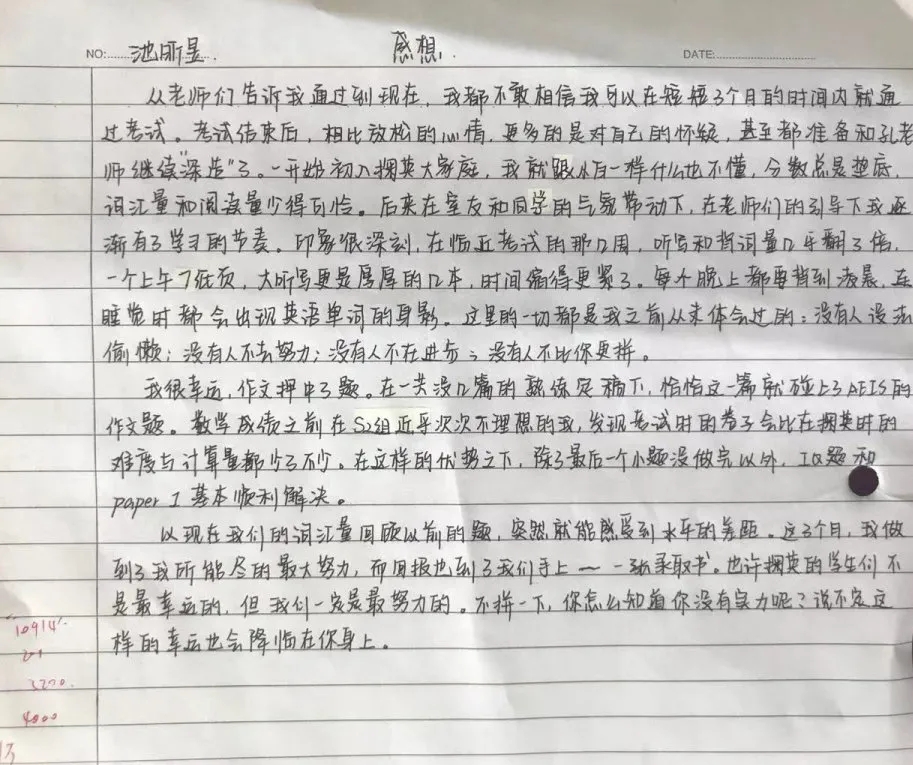 NO: 池昕昱 感想. DATE:
从老师们告诉我通过到现在，我都不敢相信我可以在短短3个月的时间内就通
过考试。考试结束后，相比放松的心情，更多的是对自己的怀疑，甚至都准备和孔老
师继续“深造”了。一开始初入拥英大家庭，我就跟小白一样什么也不懂，分数总是垫底，
词汇量和阅读量少得可怜。后来在室友和同学的气氛带动下，在老师们的引导下我逐
渐有了学习的节奏。印象很深刻，在临近考试的那几周，听写和背词量几乎翻了倍，
一个上午7张页，大听写更是厚厚的几本，时间缩得更紧了。每个晚上都要背到凌晨，连
睡觉时都会出现英语单词的身影。这里的一切都是我之前从未体会过的：没有人设法
偷懒；没有人不去努力；没有人不在进步；没有人不比你更拼。
我很幸运，作文押中了题。在一共没几篇的熟练定稿下，恰恰这一篇就碰上了AEIS的
作文题。数学成绩之前在S2组近乎次次不理想的我，发现考试时的卷子会比在拥英时的
难度与计算量都少了不少。在这样的优势之下，除了最后一个小题没做完以外，IQ题和
paper 1 基本顺利解决。
以现在我们的词汇量回顾以前的题，突然就能感受到水平的差距。这3个月，我做
到了我所能尽的最大努力，而回报也到了我们手上——一张录取书。也许拥英的学生们不
是最幸运的，但我们一定是最努力的。不拼一下，你怎么知道你没有实力呢？说不定这
样的幸运也会降临在你身上。
10914
3200
4000